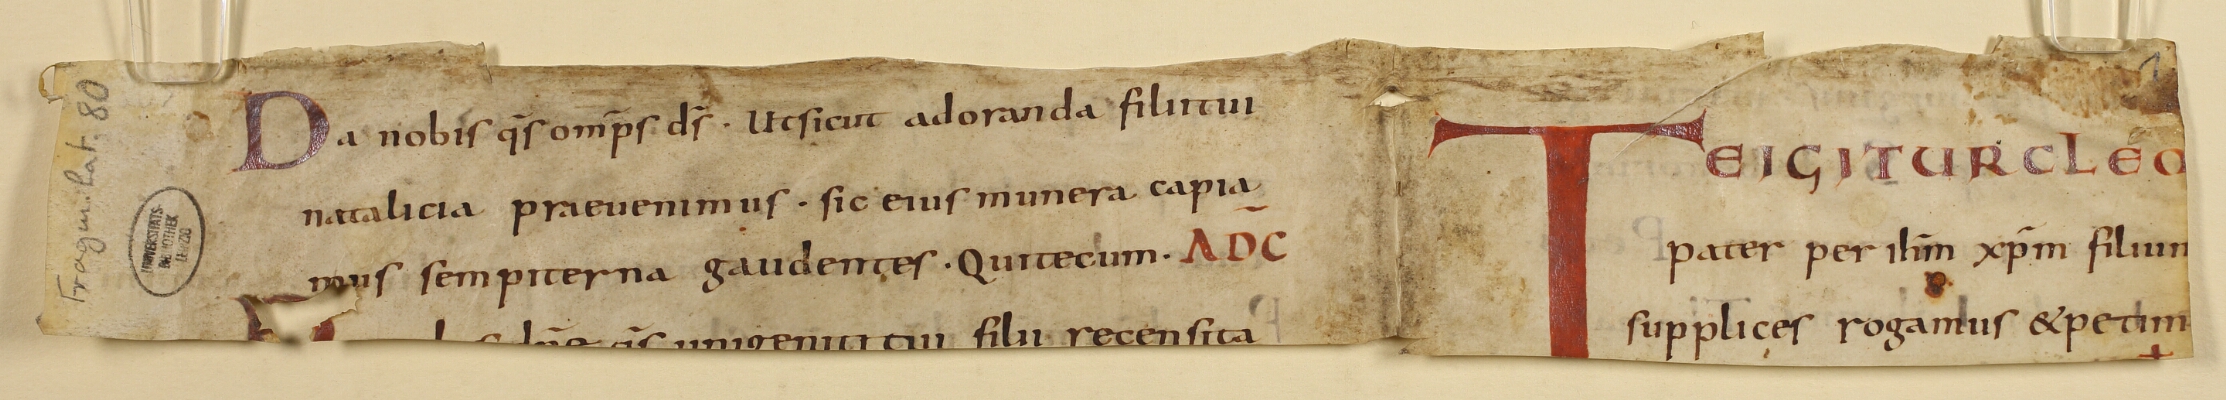 Fragm. Lat. 80
UNIVERSITÄTS-
BIBLIOTHEK
LEIPZIG
Da nobis q̄s om̄ps d̄s · Ut sicut adoranda filii tui
natalicia praevenimus · sic eius munera capia
mus sempiterna gaudentes · Qui tecum · AD C̄
dn̄e q̄s unigeniti tui filii recensita
1
TE IGITUR CLE
pater per ih̄m xp̄m filium
supplices rogamus & petim